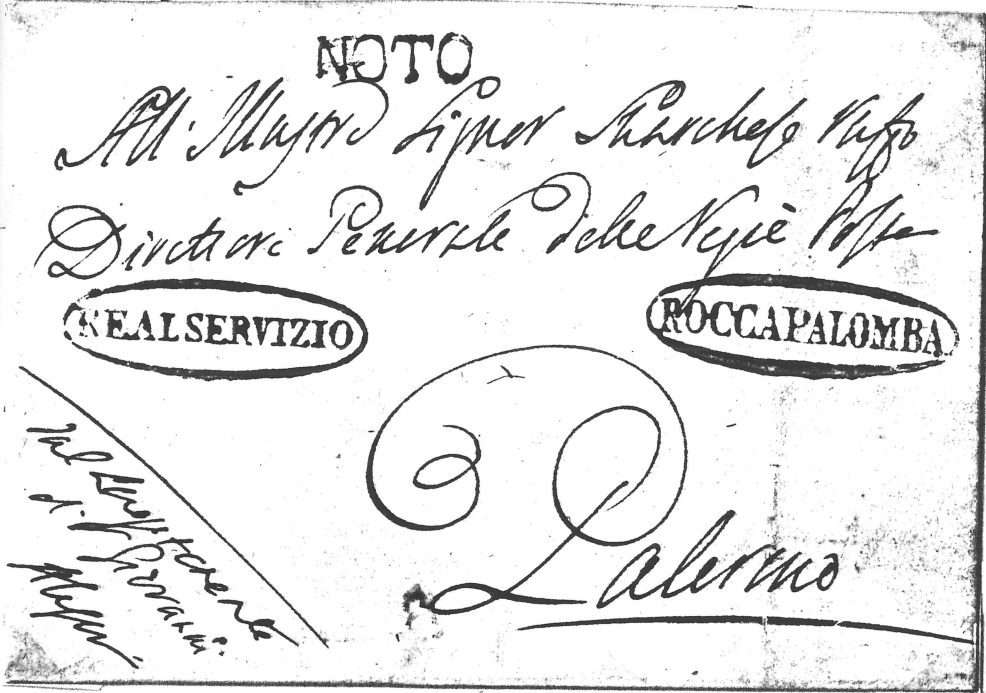 NOTO
All' Illustre Signor Marchese Ruffo
Direttore Generale delle Regie Poste
REAL SERVIZIO
ROCCAPALOMBA
Palermo
dal
di Giovanni